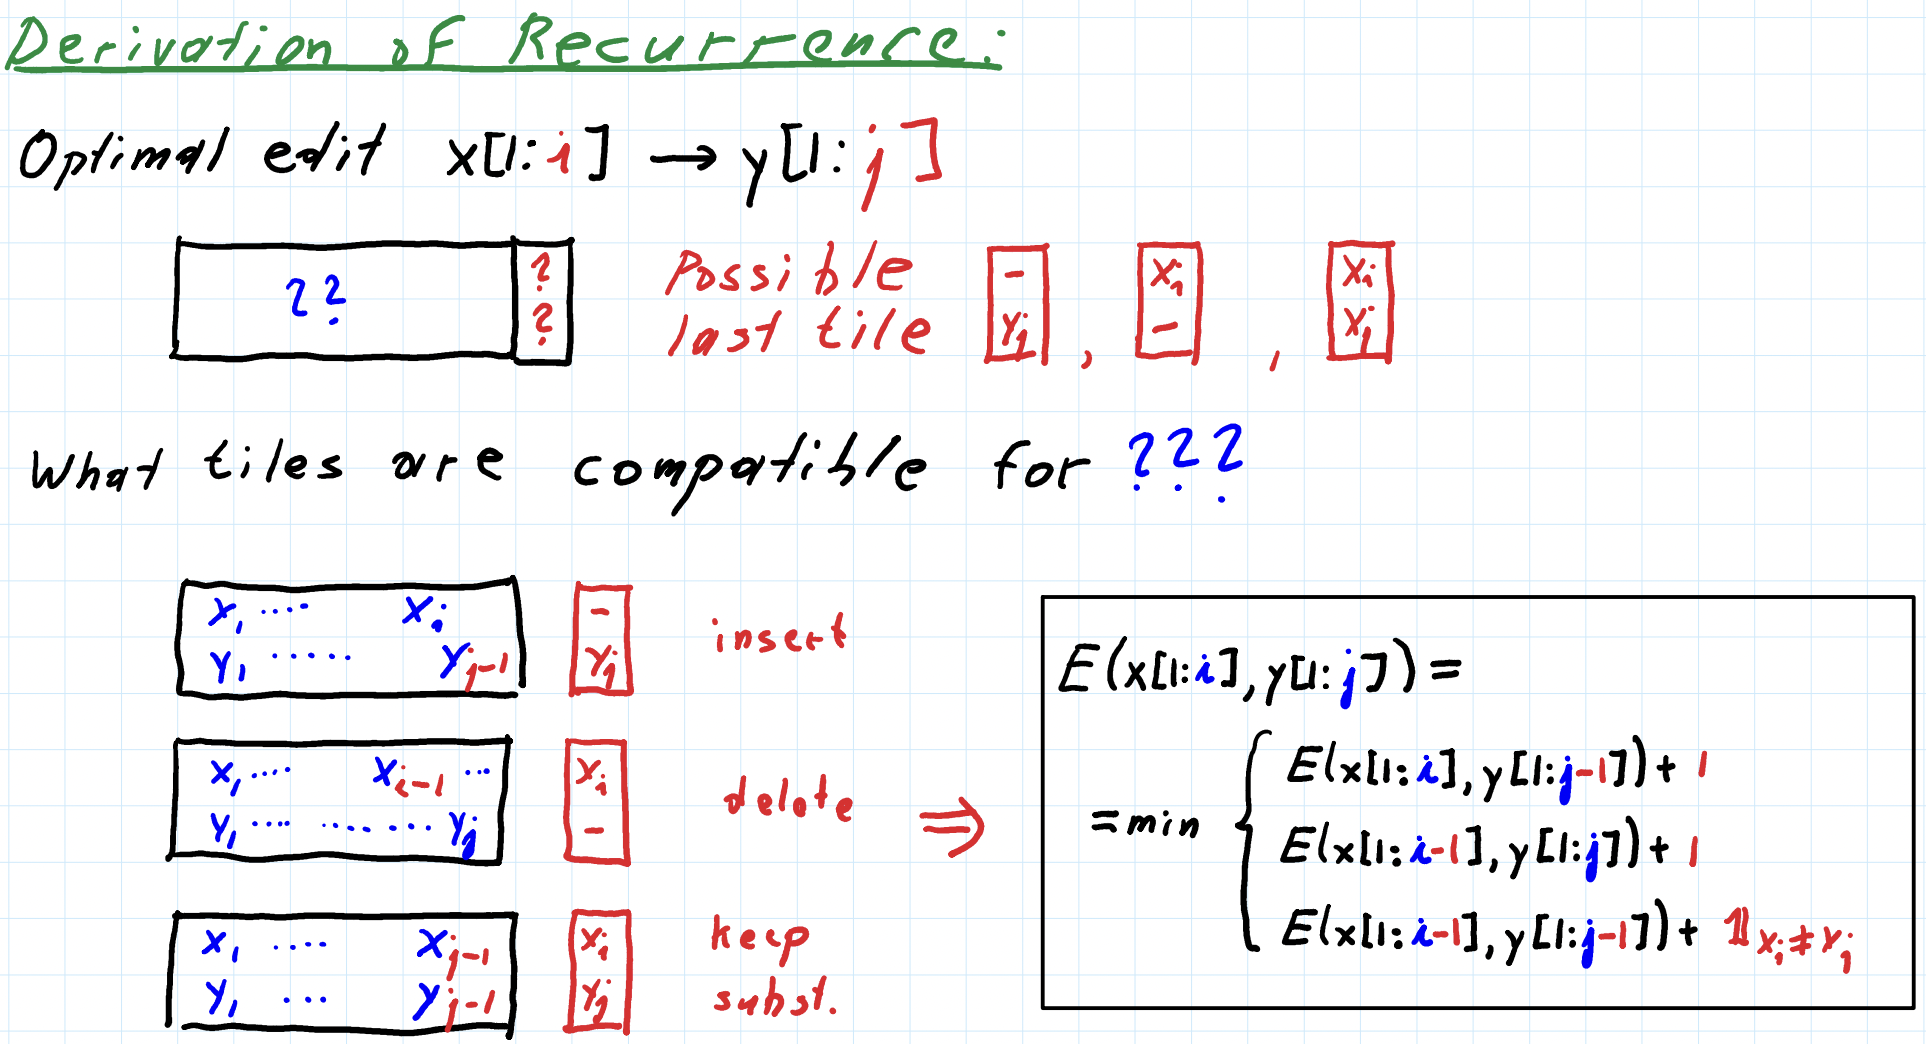 Derivation of Recurrence:
Optimal edit x[1:i] → y[1:j]
?? ? ?
Possible last tile - y_j , x_i - , x_i y_j
What tiles are compatible for ???
x_1 ····· x_i - insert
y_1 ······ y_{j-1} y_j
x_1 ····· x_{i-1} ··· x_i delete
y_1 ···· ········ y_j -
x_1 ····· x_{j-1} x_i keep
y_1 ··· y_{j-1} y_j subst.
⇒
E(x[1:i], y[1:j]) =
= min { E(x[1:i], y[1:j-1]) + 1
E(x[1:i-1], y[1:j]) + 1
E(x[1:i-1], y[1:j-1]) + 𝟙_{x_i≠y_j}